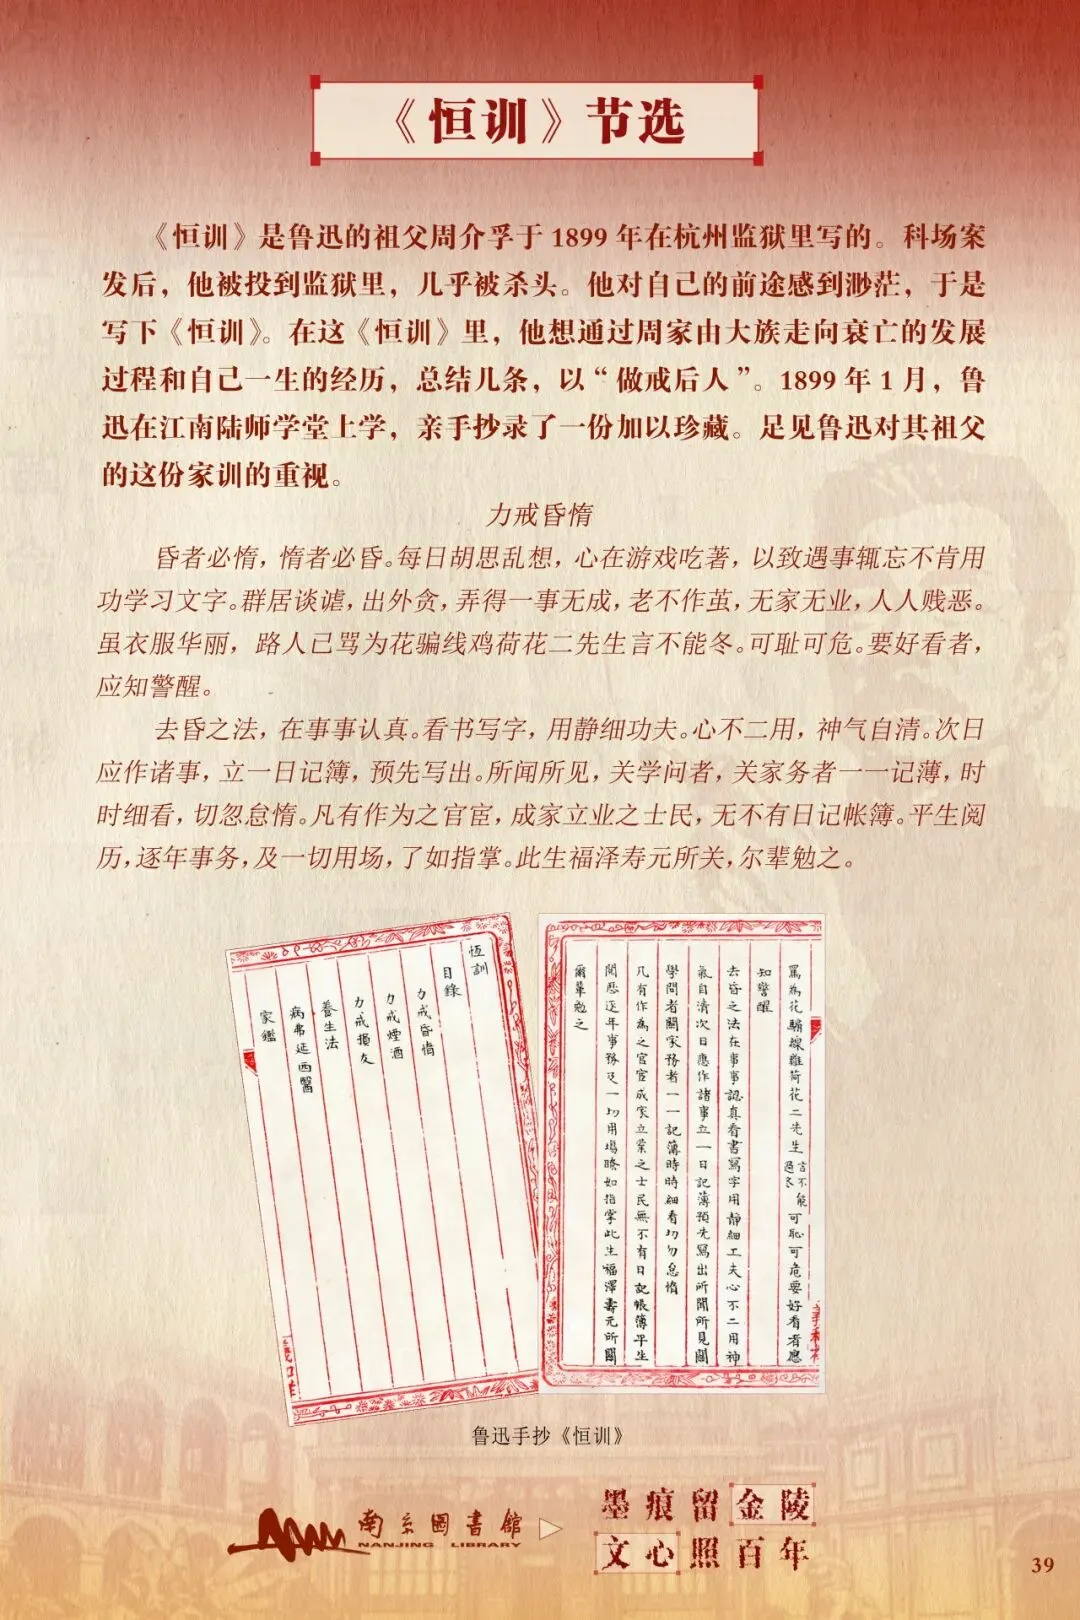 《恒训》节选
《恒训》是鲁迅的祖父周介孚于1899年在杭州监狱里写的。科场案
发后，他被投到监狱里，几乎被杀头。他对自己的前途感到渺茫，于是
写下《恒训》。在这《恒训》里，他想通过周家由大族走向衰亡的发展
过程和自己一生的经历，总结几条，以“做戒后人”。1899年1月，鲁
迅在江南陆师学堂上学，亲手抄录了一份加以珍藏。足见鲁迅对其祖父
的这份家训的重视。
力戒昏惰
昏者必惰，惰者必昏。每日胡思乱想，心在游戏吃著，以致遇事辄忘不肯用
功学习文字。群居谈谑，出外贪，弄得一事无成，老不作茧，无家无业，人人贱恶。
虽衣服华丽，路人已骂为花骗线鸡荷花二先生言不能冬。可耻可危。要好看者，
应知警醒。
去昏之法，在事事认真。看书写字，用静细功夫。心不二用，神气自清。次日
应作诸事，立一日记簿，预先写出。所闻所见，关学问者，关家务者一一记薄，时
时细看，切忽怠惰。凡有作为之官宦，成家立业之士民，无不有日记帐簿。平生阅
历，逐年事务，及一切用场，了如指掌。此生福泽寿元所关，尔辈勉之。
恆訓
目錄
力戒昏惰
力戒煙酒
力戒損友
養生法
病弗延西醫
家鑑
罵為花騙線雞荷花二先生言不能過冬可恥可危要好看者應
知警醒
去昏之法在事事認真看書寫字用靜細工夫心不二用神
氣自清次日應作諸事立一日記薄預先寫出所聞所見關
學問者關家務者一一記薄時時細看切勿怠惰
凡有作為之官宦成家立業之士民無不有日記帳薄平生
閱歷逐年事務及一切用場瞭如指掌此生福澤壽元所關
爾輩勉之
鲁迅手抄《恒训》
南京圖書館
NANJING LIBRARY
墨痕留金陵
文心照百年
39